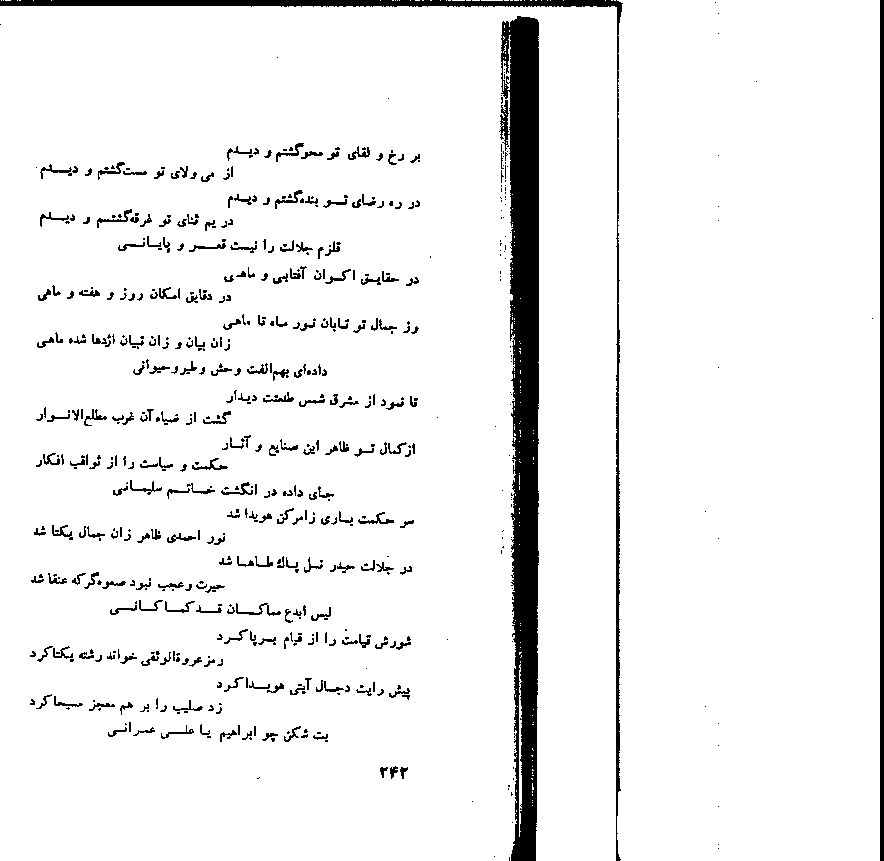 بر رخ و لقای تو محوگشتم و دیـدم
از می ولای تو مست‌گشتم و دیــدم
در ره رضای تــو بنده‌گشتم و دیـدم
در یم ثنای تو غرقه‌گشتـم و دیــدم
قلزم جلالت را نیست قعــر و پایـانـی
در حقایـق اکـوان آفتابـی و ماهـی
در دقایق امکان روز و هفته و ماهی
وز جمال تو تـابان نـور مـاه تا ماهـی
زان بیان و زان تبیان اژدها شده ماهـی
داده‌ای بهم‌الفت وحش وطیروحیوانی
تا نمود از مشرق شمس طلعتت دیـدار
گشت از ضیاء آن غرب مطلع‌الانــوار
ازکمال تــو ظاهر این صنایع و آثـار
حکمت و سیاست را از ثواقب افکار
جـای داده در انگشت خـاتـم سلیمـانـی
سر حکمت بـاری زامرکن هویدا شد
نور احمدی ظاهر زان جمال یکتا شد
در جلالت حیدر نسل پـاک طـاهـا شد
حیرت وعجب نبود صعوه‌گرکه عنقا شد
لیس ابدع ممـاکــان قــدکمـا کـانــی
شورش قیامت را از قیام بـرپاکـرد
رمزعروةالوثقی خواند رشته یکتاکرد
پیش رایت دجـال آیتی هویــداکـرد
زد صلیب را بر هم معجز مسیحاکرد
بت شکن چو ابراهیم یـا علـی عمرانـی
۲۴۲